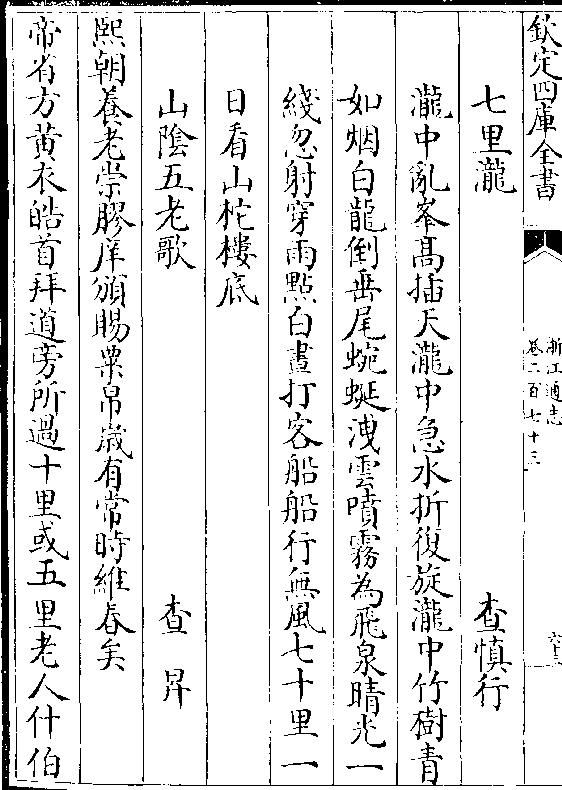 欽定四庫全書
浙江通志
卷二百七十三
六十三
七里瀧
查慎行
瀧中亂峯髙插天瀧中急水折復旋瀧中竹樹青
如烟白龍倒垂尾蜿蜒洩雲噴霧為飛泉晴光一
綫忽射穿雨點白晝打客船船行無風七十里一
日看山柁樓底
山陰五老歌
查昇
熙朝養老崇膠庠頒賜粟帛嵗有常時維春矣
帝省方黄衣皓首拜道旁所過十里或五里老人什伯